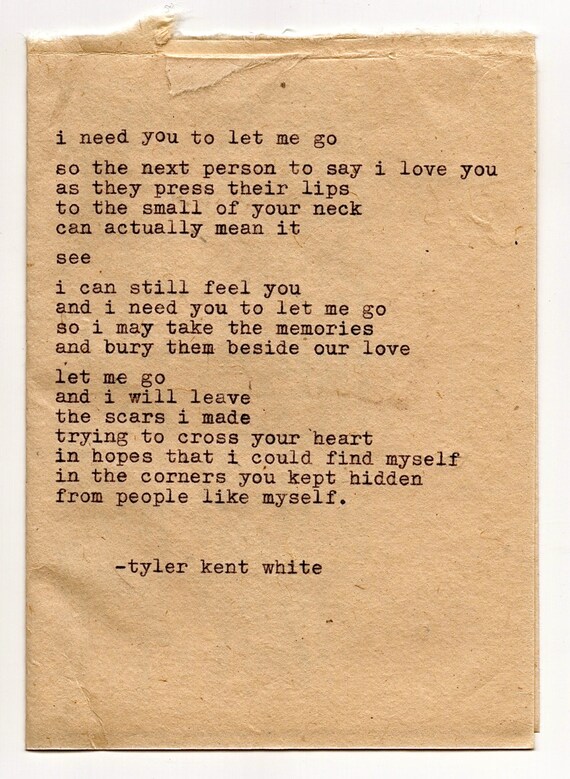 i need you to let me go
so the next person to say i love you
as they press their lips
to the small of your neck
can actually mean it
see
i can still feel you
and i need you to let me go
so i may take the memories
and bury them beside our love
let me go
and i will leave
the scars i made
trying to cross your heart
in hopes that i could find myself
in the corners you kept hidden
from people like myself.
-tyler kent white